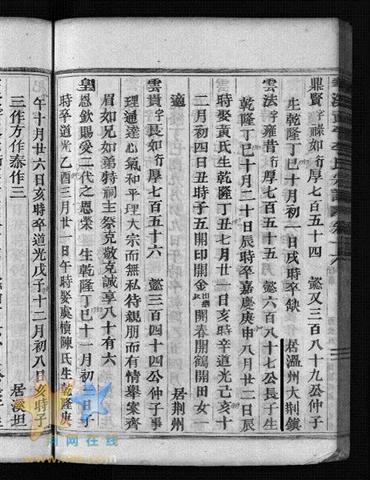 鼎賢字藤如行厚七百五十四 懿又三百八十九公仲子
生乾隆丁巳十月初一日戌時卒缺 居溫州大荆鎮
雲法字雍昔行厚七百五十五 懿六百八十七公長子生
乾隆丁巳十月二十日辰時卒嘉慶庚申八月廿二日辰
時娶黃氏生乾隆丁丑七月廿一日亥時卒道光己亥十
二月初四日丑時子五開印開金出繼開春開鶴開田女一
適 居荆州
雲貴字長如行厚七百五十六 懿三百四十四公仲子事
理通達心氣和平理大宗而無私待親朋而有情舉案齊
眉如兄如弟特祠主祭克敬克誠享八十有六
皇恩欽賜受二代之恩榮 生乾隆丁巳十一月初三日子
時卒道光乙酉三月廿 日午時娶虞積陳氏生乾隆庚
午十月廿六日亥時卒道光戊子十二月初八日亥時子
三作方作泰作三 居溪坦
河网在线